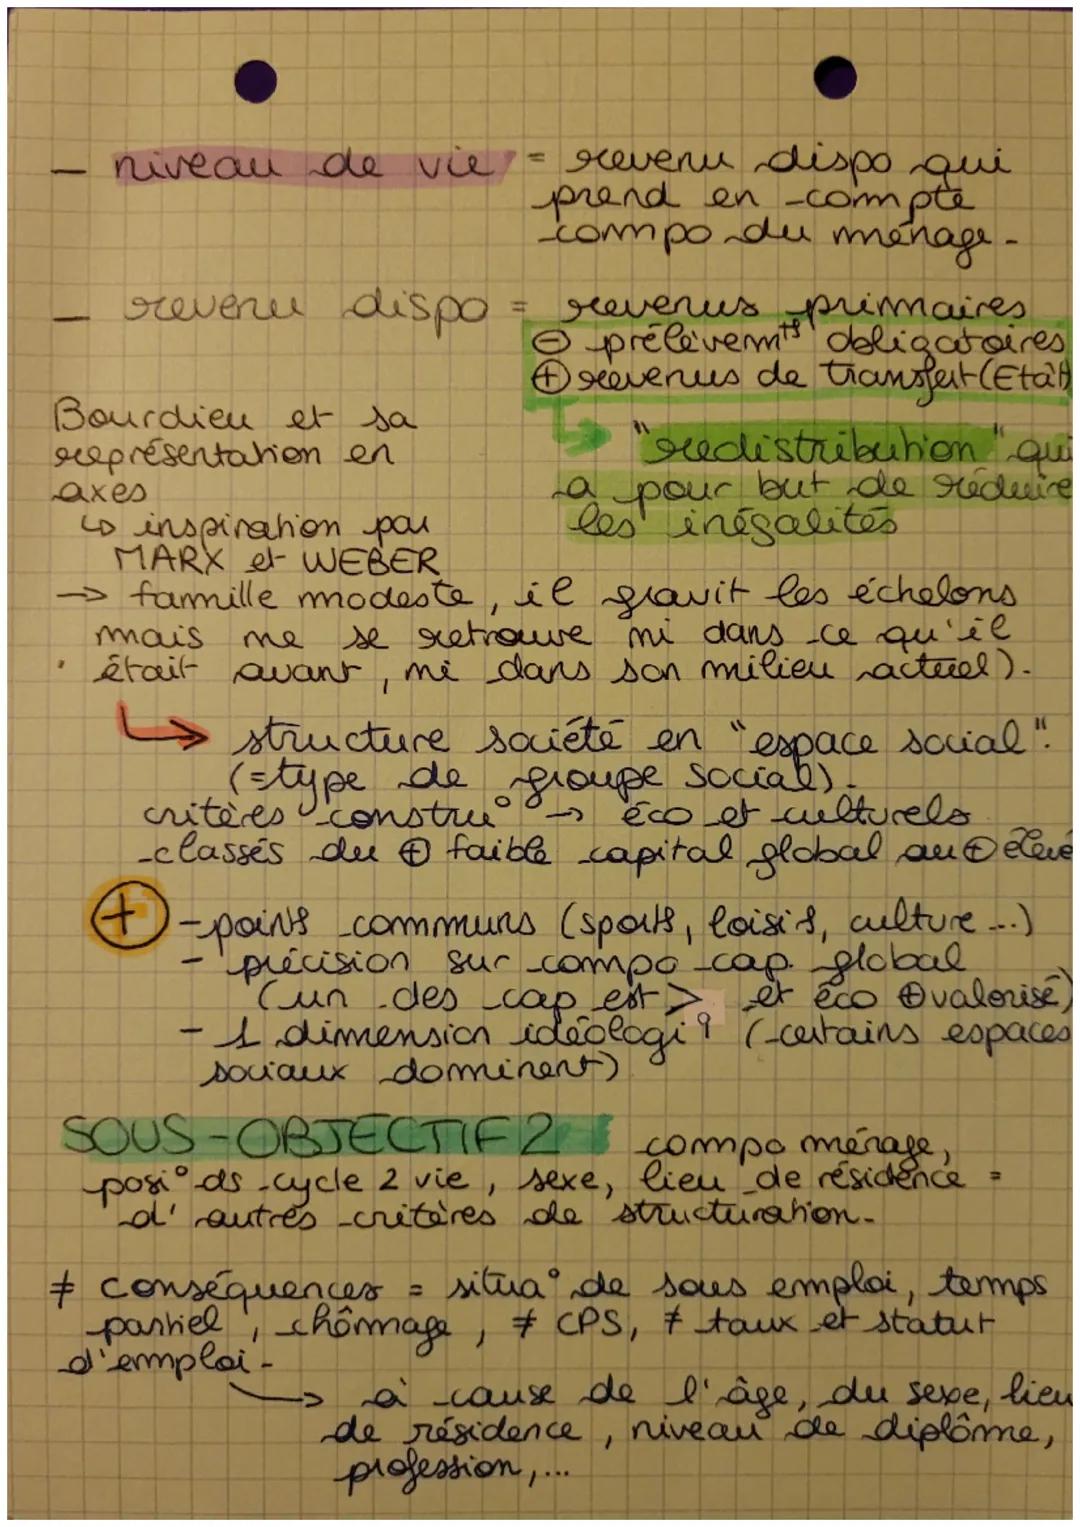 — niveau de vie = revenu dispo qui
prend en compte
compo du ménage.
— revenu dispo = revenus primaires
⊖ prélèvemᵗˢ obligatoires
⊕ revenus de transfert (Etat)
↳ "redistribution" qui
a pour but de réduire
les inégalités
Bourdieu et sa
représentation en
axes
↳ inspiration par
MARX et WEBER
→ famille modeste, il gravit les échelons
mais ne se retrouve ni dans ce qu'il
était avant, ni dans son milieu actuel).
↳ structure société en "espace social".
(= type de groupe social).
critères constru° → éco et culturels
classés du ⊕ faible capital global au ⊕ élevé
⊕ - points communs (sports, loisirs, culture...)
- précision sur compo cap. global
(un des cap est > et éco ⊕ valorisé)
- 1 dimension idéologiq (certains espaces
sociaux dominent)
SOUS-OBJECTIF 2 compo ménage,
posi° ds cycle 2 vie, sexe, lieu de résidence =
d'autres critères de structuration.
≠ conséquences = situa° de sous emploi, temps
partiel, chômage, ≠ CPS, ≠ taux et statut
d'emploi.
→ à cause de l'âge, du sexe, lieu
de résidence, niveau de diplôme,
profession,...